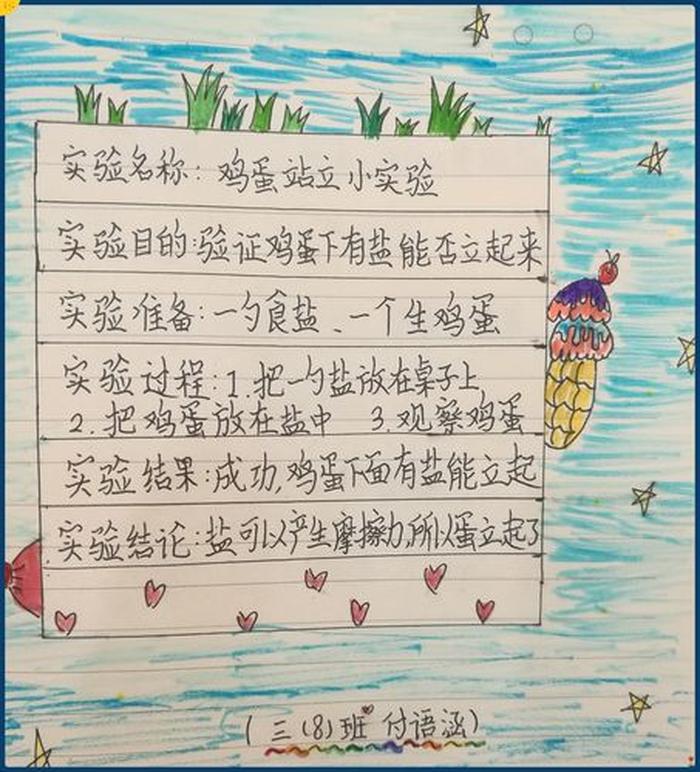 实验名称：鸡蛋站立小实验
实验目的：验证鸡蛋下有盐能否立起来
实验准备：一勺食盐、一个生鸡蛋
实验过程：1.把一勺盐放在桌子上
2.把鸡蛋放在盐中 3.观察鸡蛋
实验结果：成功，鸡蛋下面有盐能立起
实验结论：盐可以产生摩擦力，所以蛋立起了
（三（8）班 付语涵）